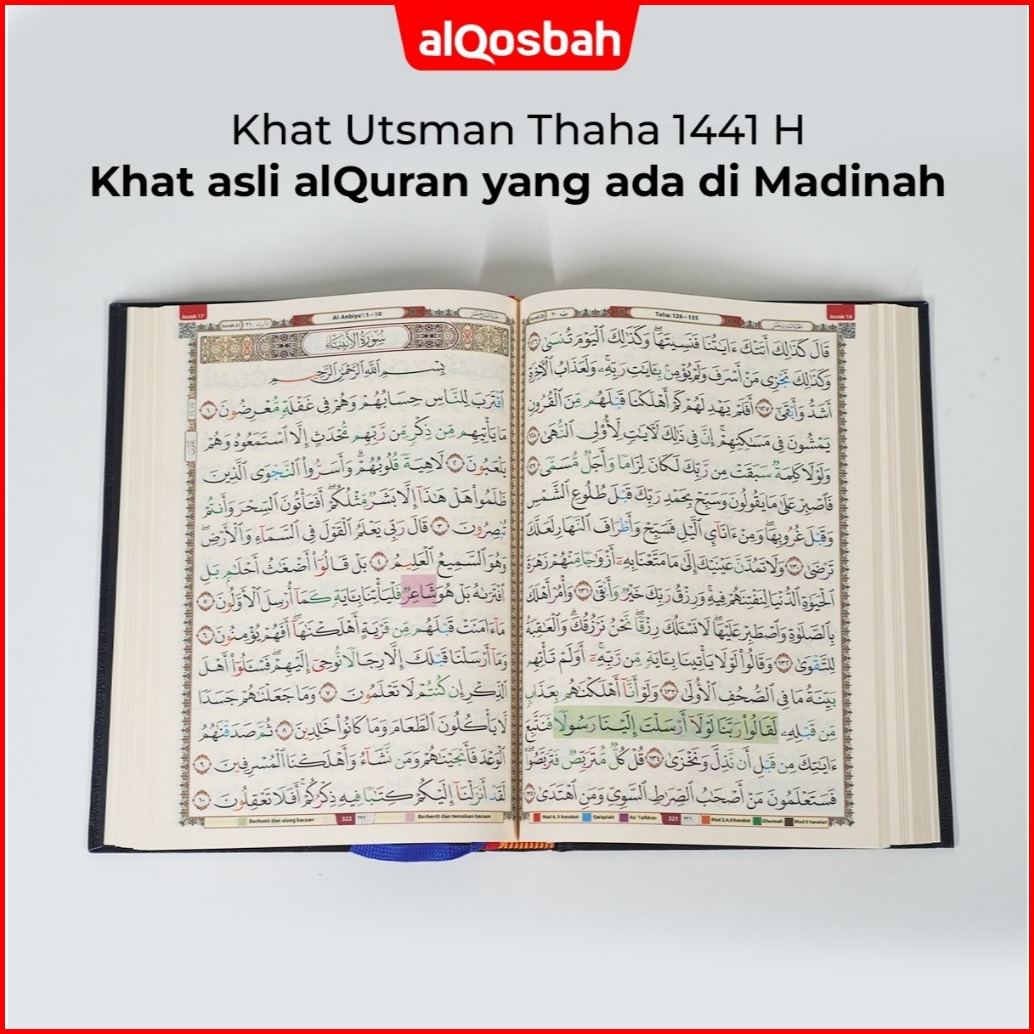 alQosbah
Khat Utsman Thaha 1441 H
Khat asli alQuran yang ada di Madinah
Juzuk 16
Taha: 126 – 135
Surah 20
قَالَ كَذَٰلِكَ أَتَتْكَ ءَايَٰتُنَا فَنَسِيتَهَاۖ وَكَذَٰلِكَ ٱلْيَوْمَ تُنسَىٰ ١٢٦
وَكَذَٰلِكَ نَجْزِى مَنْ أَسْرَفَ وَلَمْ يُؤْمِنۢ بِـَٔايَٰتِ رَبِّهِۦۚ وَلَعَذَابُ ٱلْءَاخِرَةِ
أَشَدُّ وَأَبْقَىٰٓ ١٢٧ أَفَلَمْ يَهْدِ لَهُمْ كَمْ أَهْلَكْنَا قَبْلَهُم مِّنَ ٱلْقُرُونِ
يَمْشُونَ فِى مَسَٰكِنِهِمْۚ إِنَّ فِى ذَٰلِكَ لَءَايَٰتٍ لِّأُو۟لِى ٱلنُّهَىٰ ١٢٨
وَلَوْلَا كَلِمَةٌ سَبَقَتْ مِن رَّبِّكَ لَكَانَ لِزَامًا وَأَجَلٌ مُّسَمًّى ١٢٩
فَٱصْبِرْ عَلَىٰ مَا يَقُولُونَ وَسَبِّحْ بِحَمْدِ رَبِّكَ قَبْلَ طُلُوعِ ٱلشَّمْسِ
وَقَبْلَ غُرُوبِهَاۖ وَمِنْ ءَانَآئِ ٱلَّيْلِ فَسَبِّحْ وَأَطْرَافَ ٱلنَّهَارِ لَعَلَّكَ
تَرْضَىٰ ١٣٠ وَلَا تَمُدَّنَّ عَيْنَيْكَ إِلَىٰ مَا مَتَّعْنَا بِهِۦٓ أَزْوَٰجًا مِّنْهُمْ زَهْرَةَ
ٱلْحَيَوٰةِ ٱلدُّنْيَا لِنَفْتِنَهُمْ فِيهِۚ وَرِزْقُ رَبِّكَ خَيْرٌ وَأَبْقَىٰ ١٣١ وَأْمُرْ أَهْلَكَ
بِٱلصَّلَوٰةِ وَٱصْطَبِرْ عَلَيْهَاۖ لَا نَسْـَٔلُكَ رِزْقًاۖ نَّحْنُ نَرْزُقُكَۗ وَٱلْعَٰقِبَةُ
لِلتَّقْوَىٰ ١٣٢ وَقَالُوا۟ لَوْلَا يَأْتِينَا بِـَٔايَةٍ مِّن رَّبِّهِۦٓۚ أَوَلَمْ تَأْتِهِم
بَيِّنَةُ مَا فِى ٱلصُّحُفِ ٱلْأُولَىٰ ١٣٣ وَلَوْ أَنَّآ أَهْلَكْنَٰهُم بِعَذَابٍ
مِّن قَبْلِهِۦ لَقَالُوا۟ رَبَّنَا لَوْلَآ أَرْسَلْتَ إِلَيْنَا رَسُولًا فَنَتَّبِعَ
ءَايَٰتِكَ مِن قَبْلِ أَن نَّذِلَّ وَنَخْزَىٰ ١٣٤ قُلْ كُلٌّ مُّتَرَبِّصٌ فَتَرَبَّصُوا۟ۖ
فَسَتَعْلَمُونَ مَنْ أَصْحَٰبُ ٱلصِّرَٰطِ ٱلسَّوِىِّ وَمَنِ ٱهْتَدَىٰ ١٣٥
Mad 4, 5 harakat Qalqalah Ra' Tafkhim 321 ٣٢١ Mad 2,4,6 harakat Ghunnah Mad 6 harakat
Juzuk 17
Al-Anbiya': 1 – 10
Surah 21
سُورَةُ الأَنبِيَاءِ
بِسْمِ ٱللَّهِ ٱلرَّحْمَٰنِ ٱلرَّحِيمِ
ٱقْتَرَبَ لِلنَّاسِ حِسَابُهُمْ وَهُمْ فِى غَفْلَةٍ مُّعْرِضُونَ ١
مَا يَأْتِيهِم مِّن ذِكْرٍ مِّن رَّبِّهِم مُّحْدَثٍ إِلَّا ٱسْتَمَعُوهُ وَهُمْ
يَلْعَبُونَ ٢ لَاهِيَةً قُلُوبُهُمْۗ وَأَسَرُّوا۟ ٱلنَّجْوَى ٱلَّذِينَ
ظَلَمُوا۟ هَلْ هَٰذَآ إِلَّا بَشَرٌ مِّثْلُكُمْۖ أَفَتَأْتُونَ ٱلسِّحْرَ وَأَنتُمْ
تُبْصِرُونَ ٣ قَالَ رَبِّى يَعْلَمُ ٱلْقَوْلَ فِى ٱلسَّمَآءِ وَٱلْأَرْضِۖ
وَهُوَ ٱلسَّمِيعُ ٱلْعَلِيمُ ٤ بَلْ قَالُوٓا۟ أَضْغَٰثُ أَحْلَٰمٍۭ بَلِ
ٱفْتَرَىٰهُ بَلْ هُوَ شَاعِرٌ فَلْيَأْتِنَا بِـَٔايَةٍ كَمَآ أُرْسِلَ ٱلْأَوَّلُونَ ٥
مَآ ءَامَنَتْ قَبْلَهُم مِّن قَرْيَةٍ أَهْلَكْنَٰهَآۖ أَفَهُمْ يُؤْمِنُونَ ٦
وَمَآ أَرْسَلْنَا قَبْلَكَ إِلَّا رِجَالًا نُّوحِىٓ إِلَيْهِمْۖ فَسْـَٔلُوٓا۟ أَهْلَ
ٱلذِّكْرِ إِن كُنتُمْ لَا تَعْلَمُونَ ٧ وَمَا جَعَلْنَٰهُمْ جَسَدًا
لَّا يَأْكُلُونَ ٱلطَّعَامَ وَمَا كَانُوا۟ خَٰلِدِينَ ٨ ثُمَّ صَدَقْنَٰهُمُ
ٱلْوَعْدَ فَأَنجَيْنَٰهُمْ وَمَن نَّشَآءُ وَأَهْلَكْنَا ٱلْمُسْرِفِينَ ٩
لَقَدْ أَنزَلْنَآ إِلَيْكُمْ كِتَٰبًا فِيهِ ذِكْرُكُمْۖ أَفَلَا تَعْقِلُونَ ١٠
Berhenti dan ulang bacaan 322 ٣٢٢ Berhenti dan teruskan bacaan